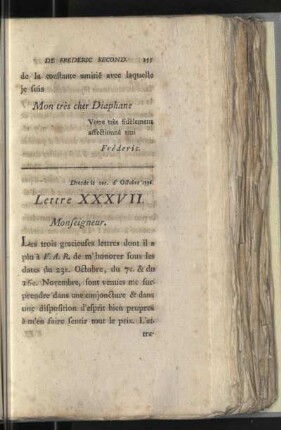 DE FREDERIC SECOND.
de la constante amitié avec laquelle
je suis
Mon très cher Diaphane
Votre très fidèlement
affectionné ami
Fréderic.
Lettre XXXVII.
Monseigneur.
Les trois gracieuses lettres dont il a
plu à V. A. R. de m'honorer sous les
dates du 23e. Octobre, du 7e. & du
16e. Novembre, sont venues me sur-
prendre dans une conjoncture & dans
une disposition d'esprit bien propres
à m'en faire sentir tout le prix. L'et-